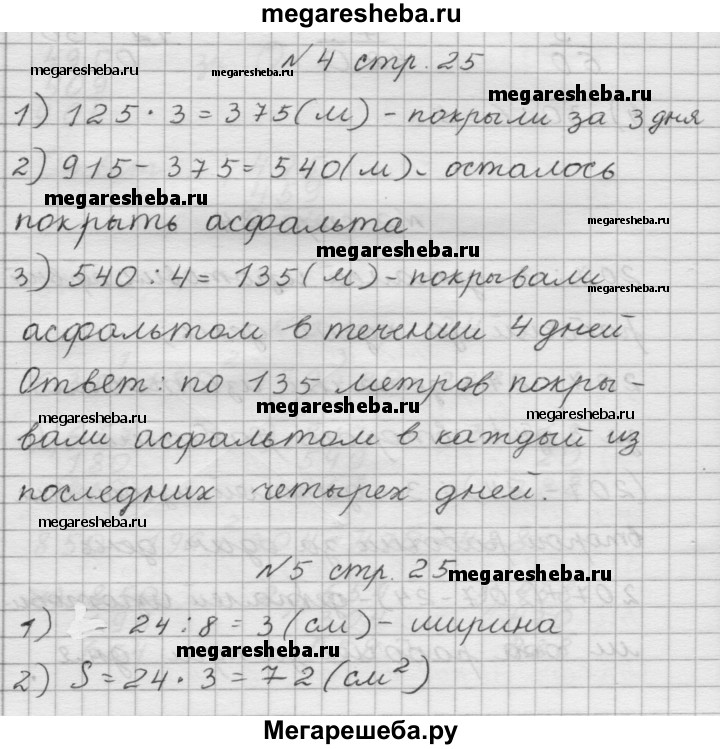 megaresheba.ru
№4 стр. 25
megaresheba.ru megaresheba.ru megaresheba.ru
1) 125 · 3 = 375 (м) - покрыли за 3 дня
2) 915 - 375 = 540 (м) - осталось
megaresheba.ru megaresheba.ru
покрыть асфальта
megaresheba.ru
3) 540 : 4 = 135 (м) - покрывали
megaresheba.ru
асфальтом в течении 4 дней
Ответ: по 135 метров покры-
megaresheba.ru megaresheba.ru megaresheba.ru
вали асфальтом в каждый из
последних четырех дней.
megaresheba.ru
№5 стр. 25
megaresheba.ru
1) - 24 : 8 = 3 (см) - ширина
megaresheba.ru megaresheba.ru
2) S = 24 · 3 = 72 (см²)
Мегарешеба.ру